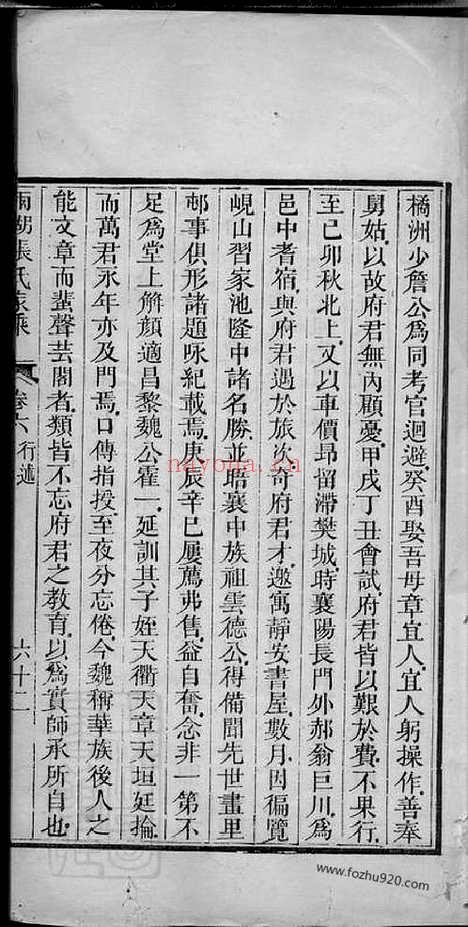 橘洲少詹公爲同考官迴避癸酉娶吾母章宜人宜人躬操作善奉
舅姑以故府君無內顧憂甲戌丁丑會試府君皆以艱於費不果行
至己卯秋北上又以車價昻留滯樊城時襄陽長門外郝翁巨川爲
邑中耆宿與府君遇於旅次奇府君才邀寓靜安書屋數月因徧覽
峴山習家池隆中諸名勝並瑨襄中族祖雲德公得備聞先世畫里
邨事俱形諸題咏紀載焉庚辰辛巳屢薦弗售益自奮念非一第不
足爲堂上解顔適昌黎魏公霍一延訓其子姪天衢天章天垣廷掄
而萬君永年亦及門焉口傳指授至夜分忘倦今魏稱華族後人之
能文章而蜚聲芸閣者類皆不忘府君之教育以爲實師承所自也
張氏家乘
卷六
行述
六十二
nayona.cn
www.fozhu920.com